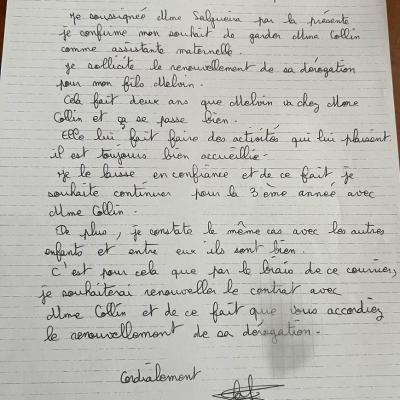 Je soussignée Mme Salgueira par la présente
je confirme mon souhait de garder Mme Collin
comme assistante maternelle.
Je sollicite le renouvellement de sa dérogation
pour mon fils Melvin.
Cela fait deux ans que Melvin va chez Mme
Collin et ça se passe bien.
Elle lui fait faire des activités qui lui plaisent
il est toujours bien accueillie.
Je le laisse en confiance et de ce fait je
souhaite continuer pour la 3ème année avec
Mme Collin.
De plus, je constate le même cas avec les autres
enfants et entre eux ils sont bien.
C'est pour cela que par le biais de ce courrier,
je souhaiterai renouveller le contrat avec
Mme Collin et de ce fait que vous accordiez
le renouvellement de sa dérogation.
Cordialement